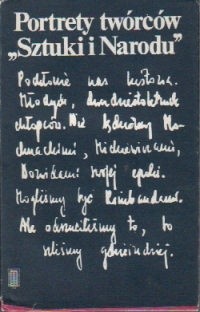 Portrety twórców
„Sztuki i Narodu”
Podeptanie nas historia.
Młodych, dwudziestoletnich
chłopców. Nie będziemy Mo-
chnackimi, Mickiewiczami,
Norwidami swojej epoki.
Mogliśmy być Rimbaudami.
Ale odrzuciliśmy to, bo
szliśmy gdzieindziej.